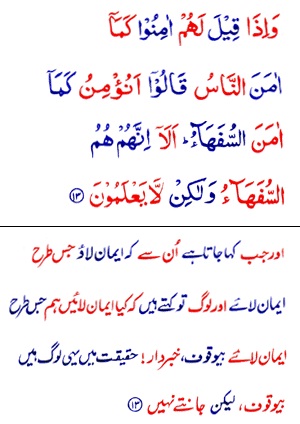 وَاِذَا قِيْلَ لَهُمْ اٰمِنُوْا كَمَاۤ
اٰمَنَ النَّاسُ قَالُوْۤا اَنُؤْمِنُ كَمَاۤ
اٰمَنَ السُّفَهَآءُ ؕ اَلَاۤ اِنَّهُمْ هُمُ
السُّفَهَآءُ وَلٰكِنْ لَّا يَعْلَمُوْنَ ﴿۱۳﴾
اور جب کہا جاتا ہے اُن سے کہ ایمان لاؤ جس طرح
ایمان لائے اور لوگ تو کہتے ہیں کہ کیا ایمان لائیں ہم جس طرح
ایمان لائے بیوقوف، خبردار! حقیقت میں یہی لوگ ہیں
بیوقوف، لیکن جانتے نہیں ﴿۱۳﴾